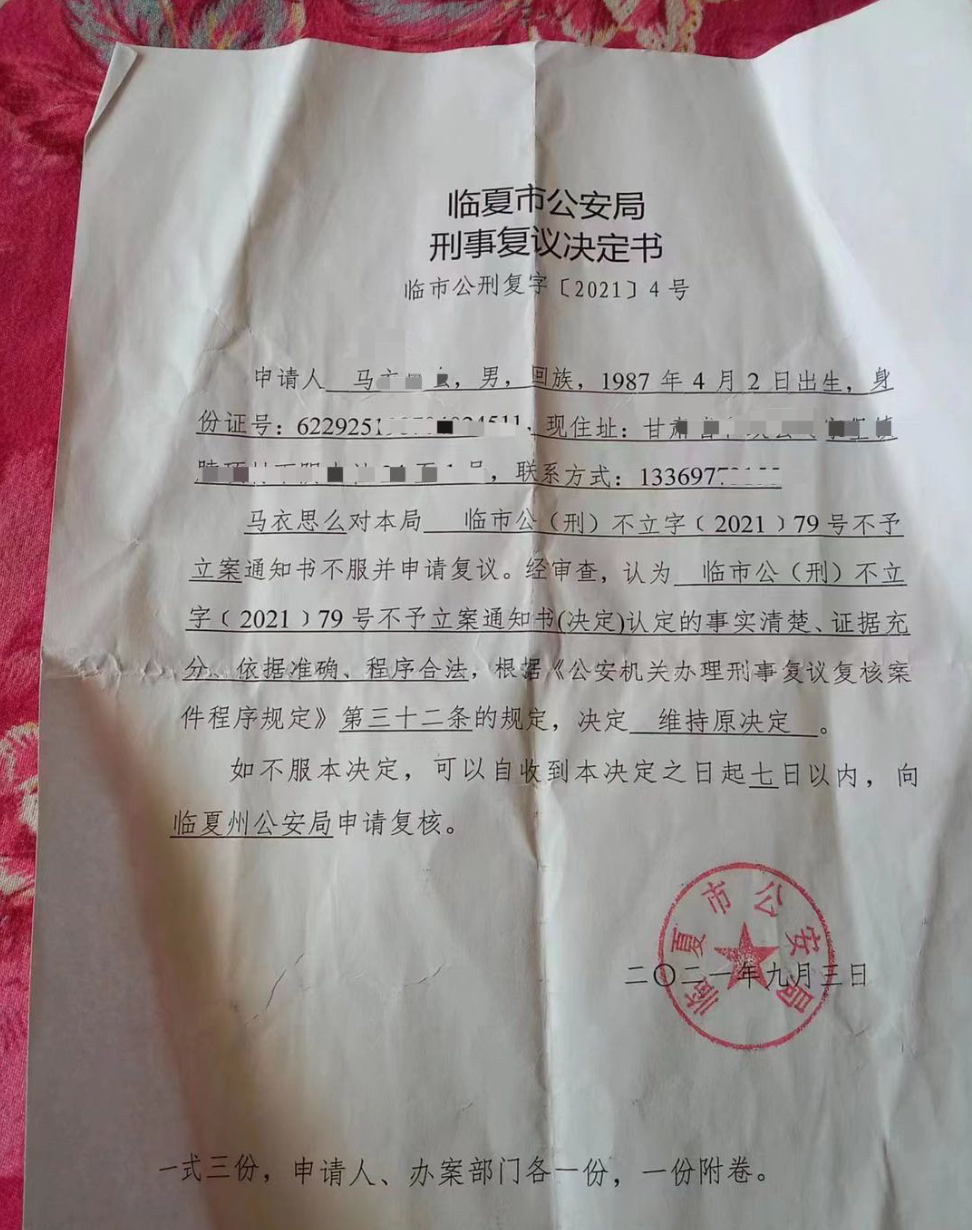 临夏市公安局
刑事复议决定书
临市公刑复字〔2021〕4号
申请人 马，男，回族，1987年4月2日出生，身
份证号：6229251，现住址：甘肃
，联系方式：133697
马衣思么对本局 临市公（刑）不立字（2021）79号不予
立案通知书不服并申请复议。经审查，认为 临市公（刑）不立
字（2021）79号不予立案通知书(决定)认定的事实清楚、证据充
分、依据准确、程序合法，根据《公安机关办理刑事复议复核案
件程序规定》第三十二条的规定，决定 维持原决定 。
如不服本决定，可以自收到本决定之日起七日以内，向
临夏州公安局申请复核。
临夏市公安局
二〇二一年九月三日
一式三份，申请人、办案部门各一份，一份附卷。